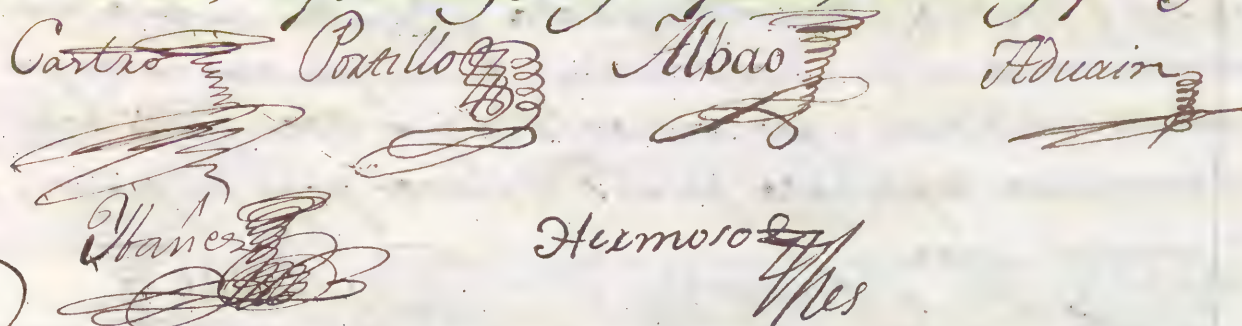 Castro Portillo Albao Aduain
Ybañez Hermoso